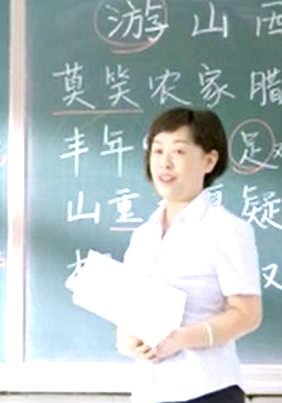 游山西
莫笑农家腊
丰年 足
山重 疑